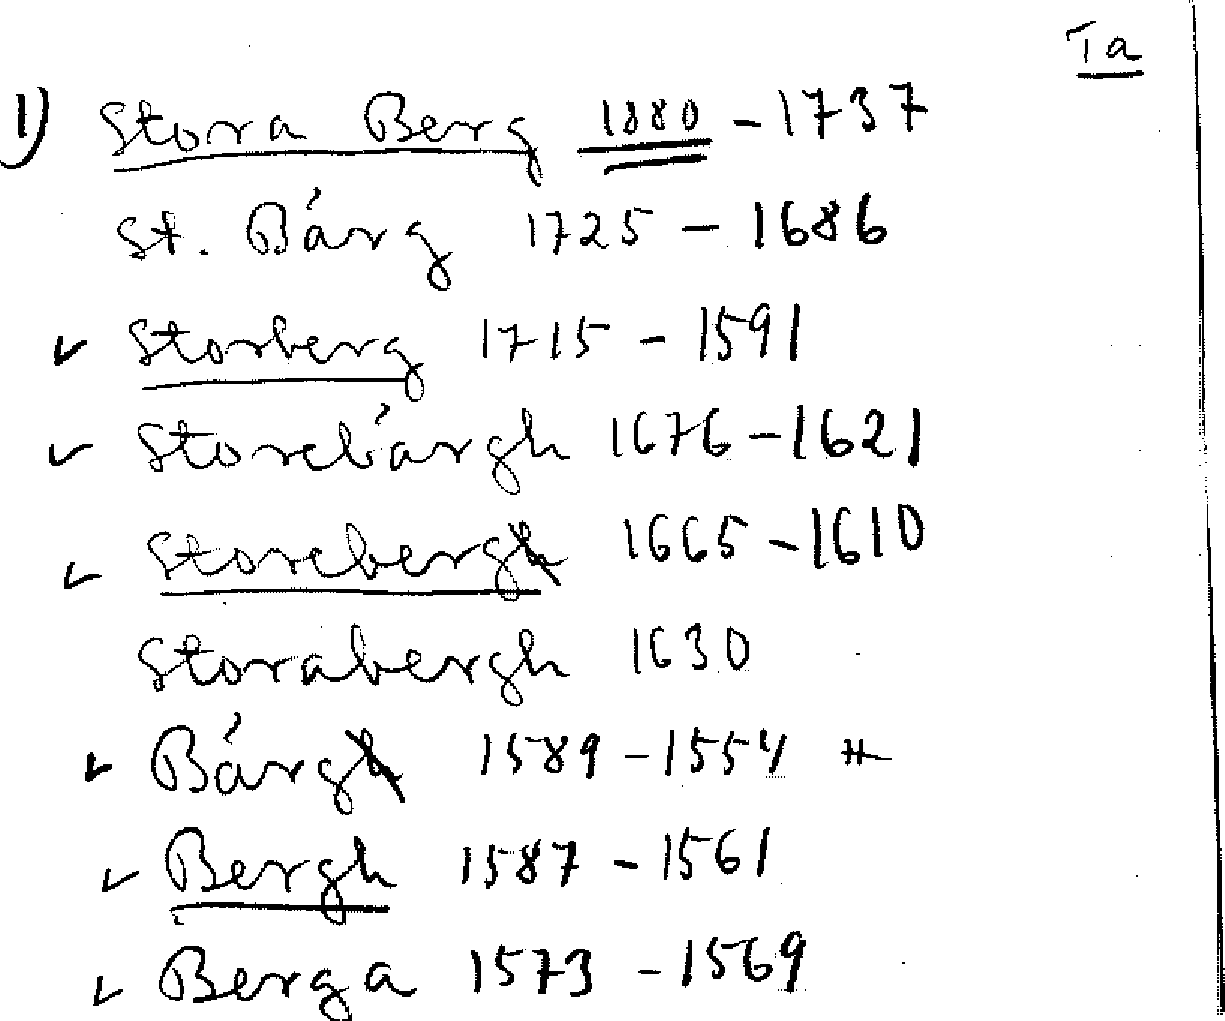 Ta
1) Stora Berg 1880 - 1737
St. Bärg 1725 - 1686
✓ Storberg 1715 - 1591
✓ Storebärgh 1676 - 1621
✓ Storeberg 1665 - 1610
Storabergh 1630
✓ Bärg 1589 - 1554 #
✓ Bergh 1587 - 1561
✓ Berga 1573 - 1569